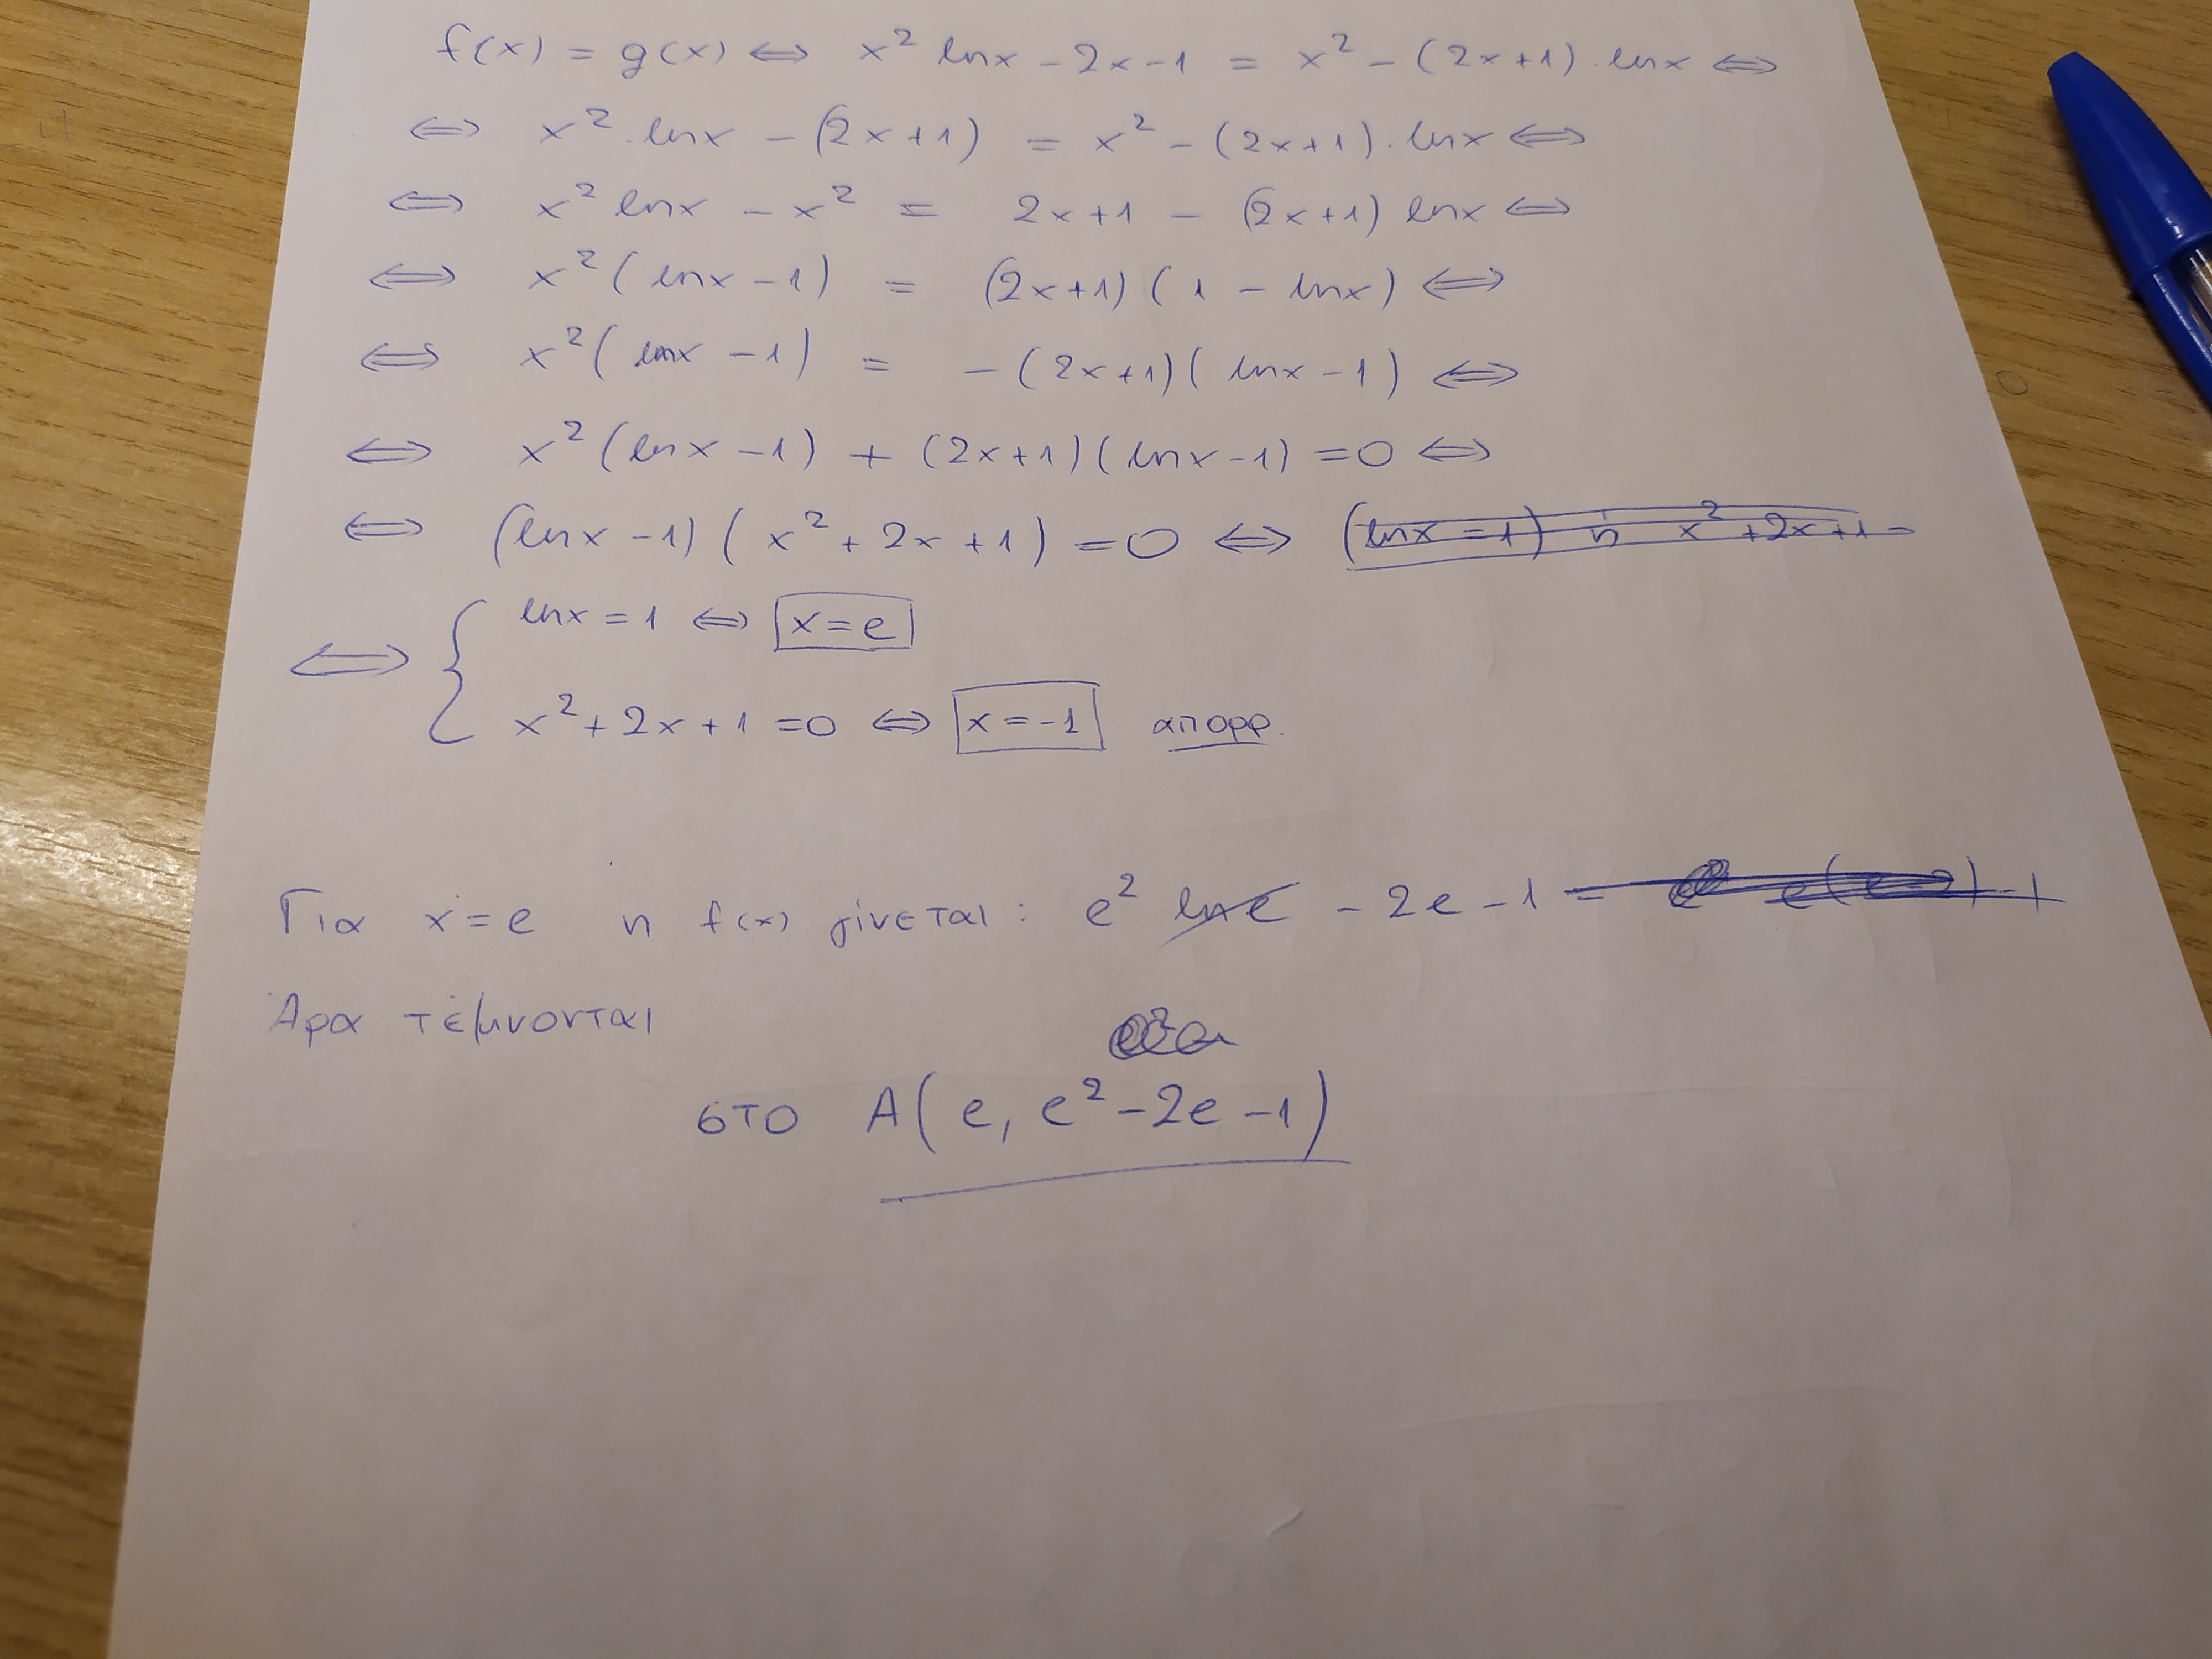 f(x) = g(x) ⇔ x² lnx - 2x - 1 = x² - (2x+1) · lnx ⇔
⇔ x² · lnx - (2x+1) = x² - (2x+1) · lnx ⇔
⇔ x² lnx - x² = 2x+1 - (2x+1) lnx ⇔
⇔ x² (lnx - 1) = (2x+1) (1 - lnx) ⇔
⇔ x² (lnx - 1) = - (2x+1) (lnx - 1) ⇔
⇔ x² (lnx - 1) + (2x+1) (lnx - 1) = 0 ⇔
⇔ (lnx - 1) (x² + 2x + 1) = 0 ⇔ (lnx = 1) ή x² + 2x + 1 =
⇔ { lnx = 1 ⇔ x = e
x² + 2x + 1 = 0 ⇔ x = -1 απορρ.
Για x = e η f(x) γίνεται : e² lne - 2e - 1 =
Άρα τέμνονται
στο A(e, e² - 2e - 1)